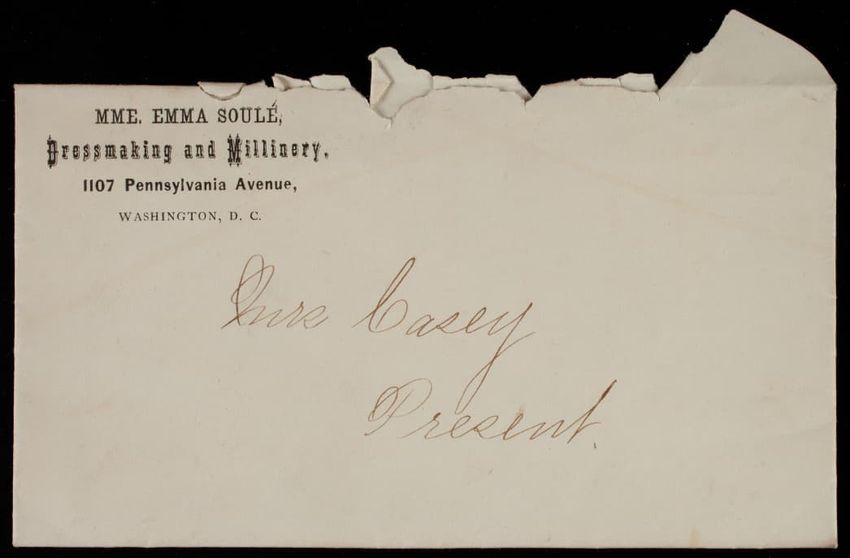 MME. EMMA SOULÉ,
Dressmaking and Millinery,
1107 Pennsylvania Avenue,
WASHINGTON, D. C.
Mrs Casey
Present.